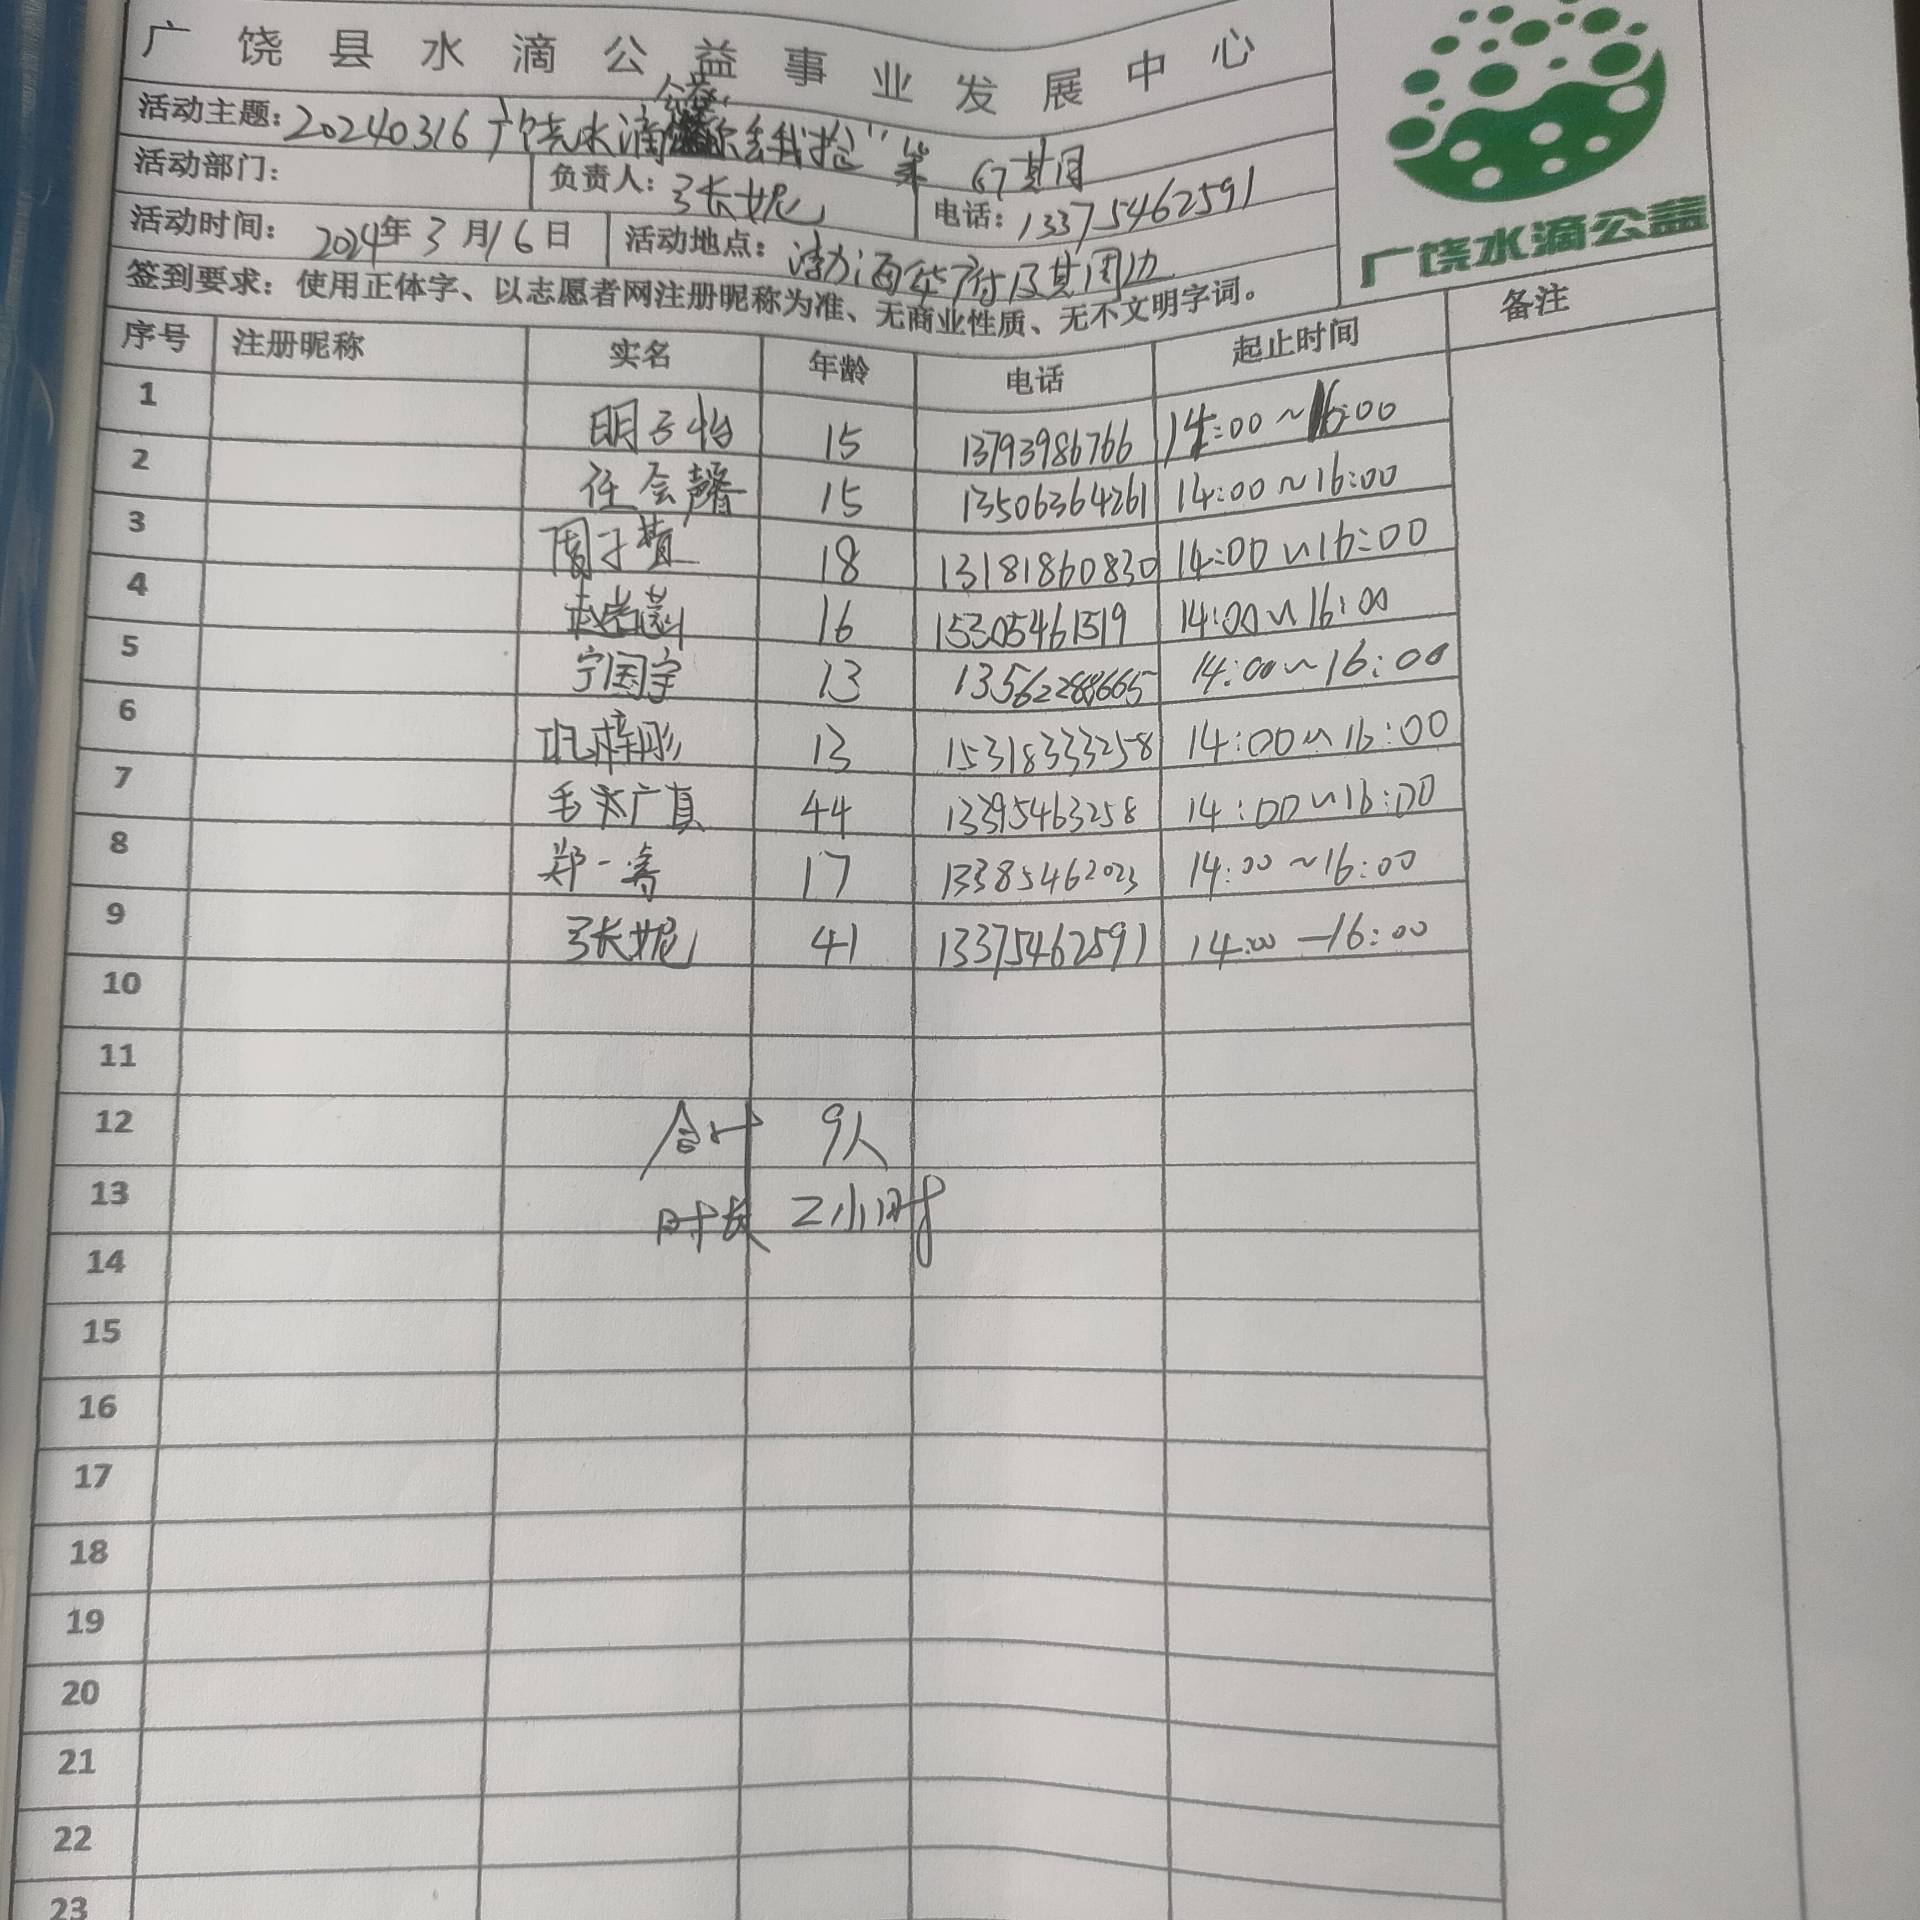 广饶县水滴公益事业发展中心
活动主题：20240316广饶水滴公益“你丢我捡”第67期
活动部门： 负责人：张妮 电话：13375462591
活动时间：2024年3月16日 活动地点：渤海华府及其周边
签到要求：使用正体字、以志愿者网注册昵称为准、无商业性质、无不文明字词。
广饶水滴公益
序号 注册昵称 实名 年龄 电话 起止时间 备注
1 明子怡 15 13793986766 14:00~16:00
2 任会馨 15 13506364261 14:00~16:00
3 周子 18 13181860830 14:00~16:00
4 16 15305461519 14:00~16:00
5 宁国宇 13 13562288665 14:00~16:00
6 巩梓彤 13 15318333258 14:00~16:00
7 毛 广真 44 13395463258 14:00~16:00
8 郑一 17 13385462023 14:00~16:00
9 张妮 41 13375462591 14:00—16:00
10
11
12 合计 9人
13 时长 2小时
14
15
16
17
18
19
20
21
22
23